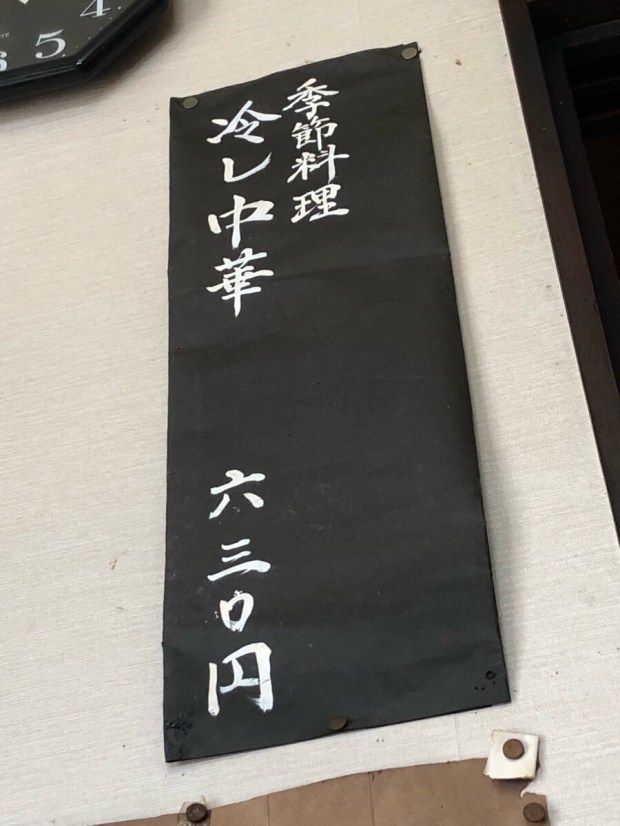 季節料理
冷し中華 六三〇円
4
5
6